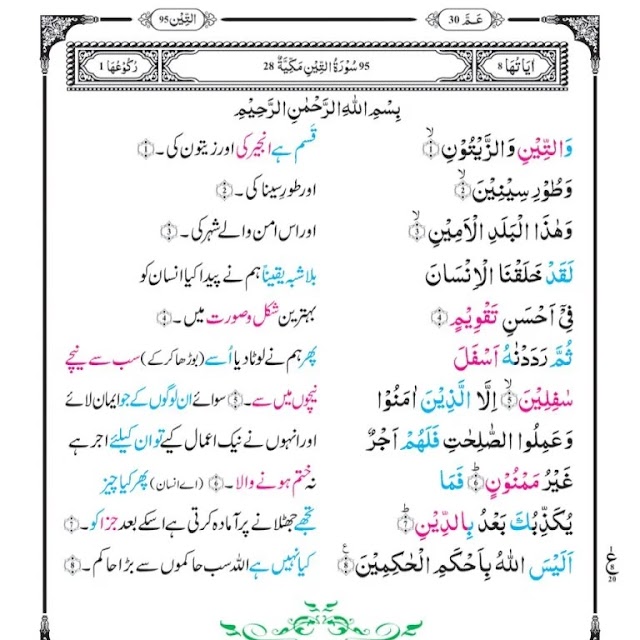 عَمَّ 30 التِّیْن 95
اٰیَاتُهَا 8 95 سُوْرَةُ التِّیْنِ مَكِّیَّةٌ 28 رُكُوْعُهَا 1
بِسْمِ اللّٰهِ الرَّحْمٰنِ الرَّحِیْمِ
وَالتِّیْنِ وَالزَّیْتُوْنِ ۙ﴿1﴾ قسم ہے انجیر کی اور زیتون کی۔ ﴿1﴾
وَطُوْرِ سِیْنِیْنَ ۙ﴿2﴾ اور طورِ سینا کی۔ ﴿2﴾
وَهٰذَا الْبَلَدِ الْاَمِیْنِ ۙ﴿3﴾ اور اس امن والے شہر کی۔ ﴿3﴾
لَقَدْ خَلَقْنَا الْاِنْسَانَ بلاشبہ یقیناً ہم نے پیدا کیا انسان کو
فِیْۤ اَحْسَنِ تَقْوِیْمٍ ﴿4﴾ بہترین شکل و صورت میں۔ ﴿4﴾
ثُمَّ رَدَدْنٰهُ اَسْفَلَ پھر ہم نے لوٹا دیا اُسے (بوڑھا کرکے) سب سے نیچے
سٰفِلِیْنَ ۙ﴿5﴾ اِلَّا الَّذِیْنَ اٰمَنُوْا نیچوں میں سے۔ ﴿5﴾ سوائے ان لوگوں کے جو ایمان لائے
وَعَمِلُوا الصّٰلِحٰتِ فَلَهُمْ اَجْرٌ اور انہوں نے نیک اعمال کیے تو ان کیلئے اجر ہے
غَیْرُ مَمْنُوْنٍ ؕ﴿6﴾ فَمَا نہ ختم ہونے والا۔ ﴿6﴾ (اے انسان) پھر کیا چیز
یُكَذِّبُكَ بَعْدُ بِالدِّیْنِ ؕ﴿7﴾ تجھے جھٹلانے پر آمادہ کرتی ہے اسکے بعد جزا کو۔ ﴿7﴾
اَلَیْسَ اللّٰهُ بِاَحْكَمِ الْحٰكِمِیْنَ ﴿8﴾ کیا نہیں ہے اللہ سب حاکموں سے بڑا حاکم۔ ﴿8﴾
ع
8
20